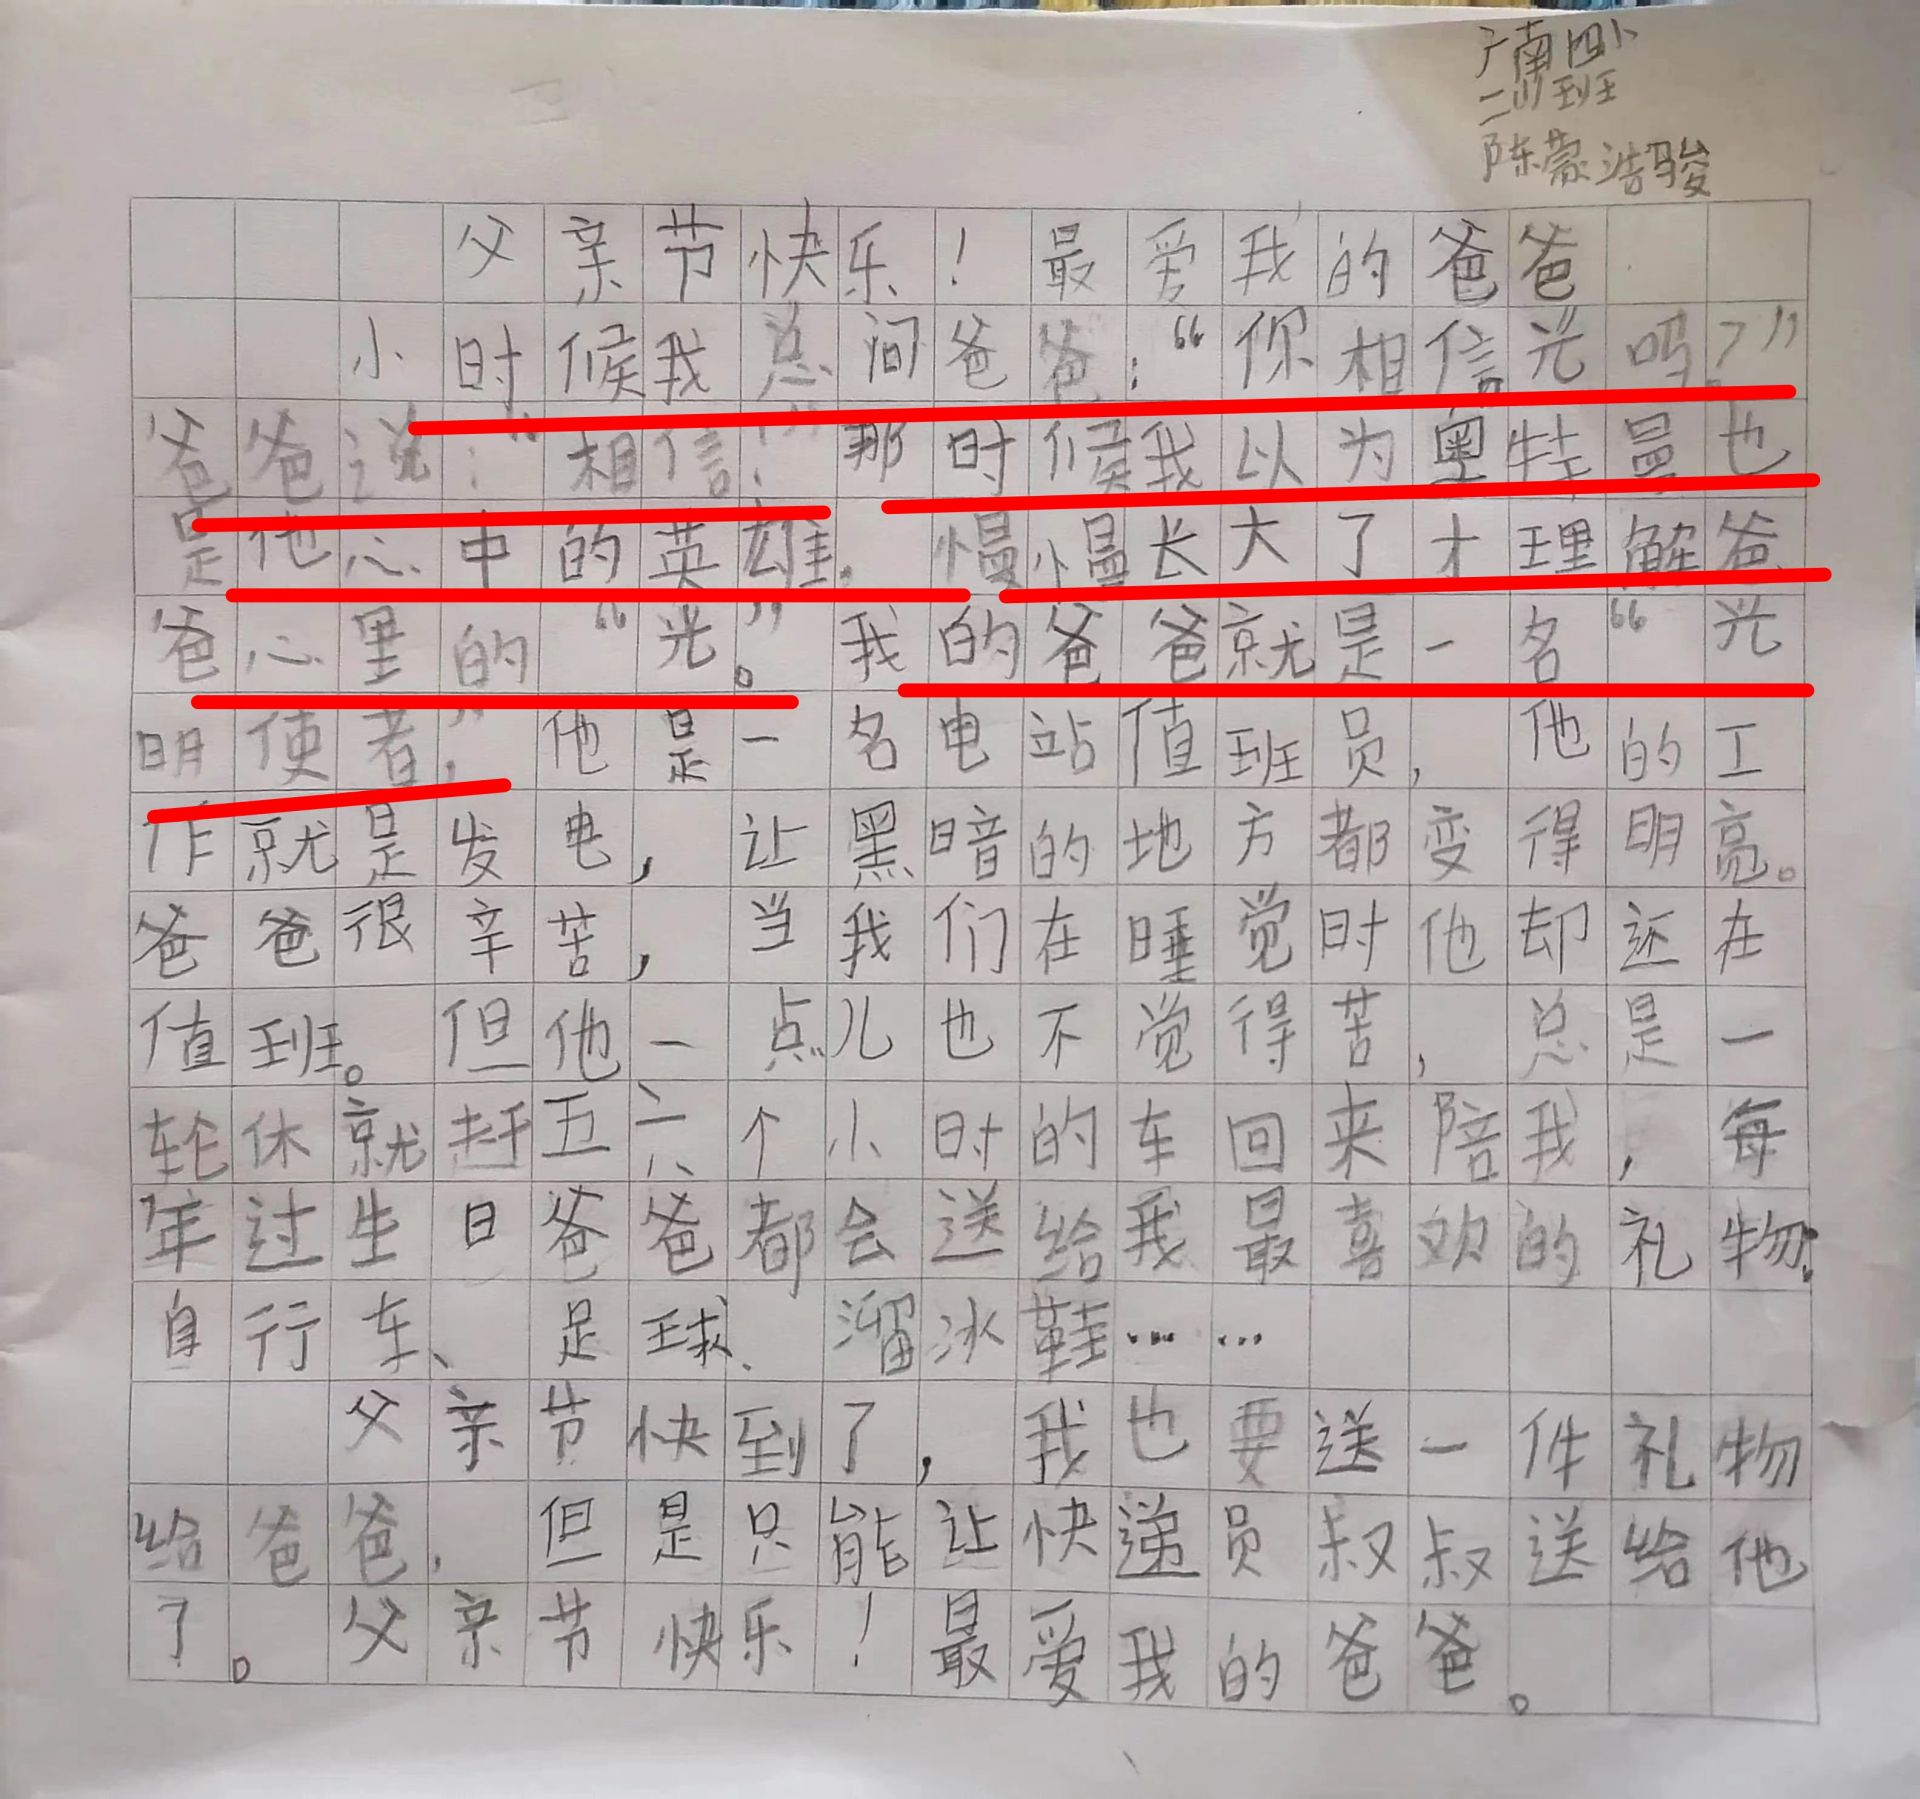 广南四小
二(1)班
陈蒙浩骏
父亲节快乐！最爱我的爸爸
小时候我总问爸爸：“你相信光吗？”
爸爸说：“相信！”那时候我以为奥特曼也
是他心中的英雄。慢慢长大了才理解爸
爸心里的“光”。我的爸爸就是一名“光
明使者”，他是一名电站值班员，他的工
作就是发电，让黑暗的地方都变得明亮。
爸爸很辛苦，当我们在睡觉时他却还在
值班。但他一点儿也不觉得苦，总是一
轮休就赶五六个小时的车回来陪我，每
年过生日爸爸都会送给我最喜欢的礼物：
自行车、足球、溜冰鞋……
父亲节快到了，我也要送一件礼物
给爸爸，但是只能让快递员叔叔送给他
了。父亲节快乐！最爱我的爸爸。